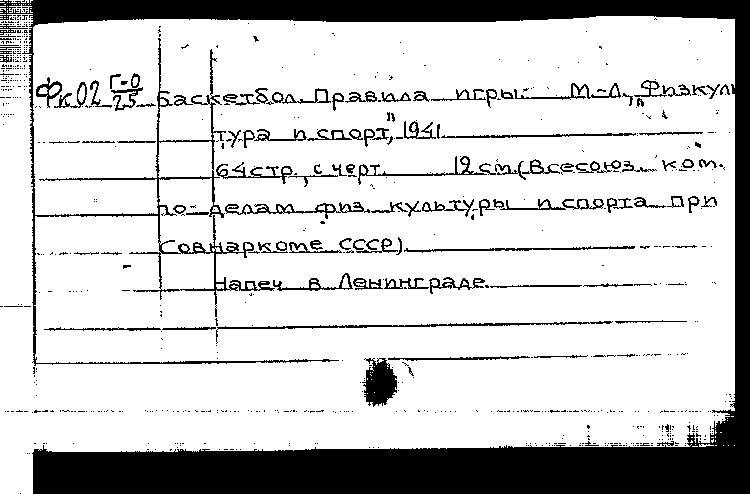 Фк02 Г-0/25 Баскетбол. Правила игры. М.-Л., „Физкуль
тура и спорт", 1941.
64стр., с черт. 12см. (Всесоюз. ком.
по делам физ. культуры и спорта при
Совнаркоме СССР).
Напеч. в Ленинграде.